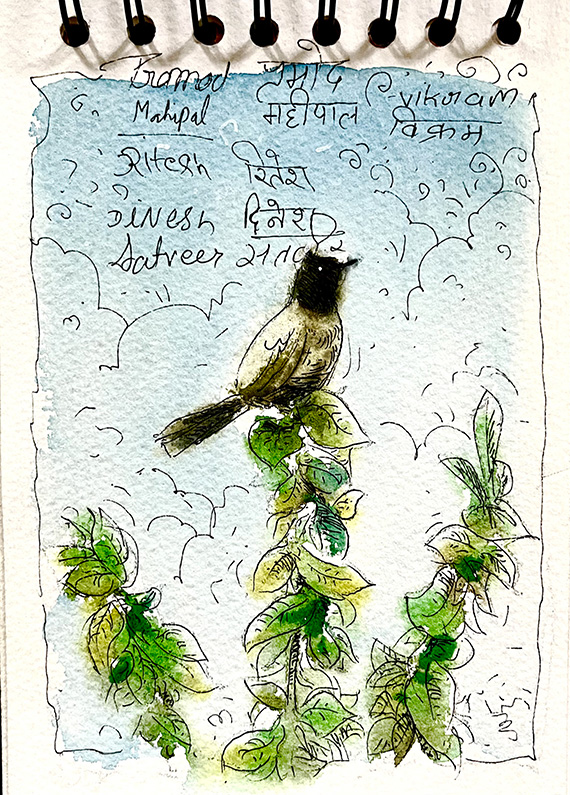 Pramod प्रमोद
Mahipal महीपाल
vikram
विक्रम
Ritesh रितेश
Dinesh दिनेश
Satveer